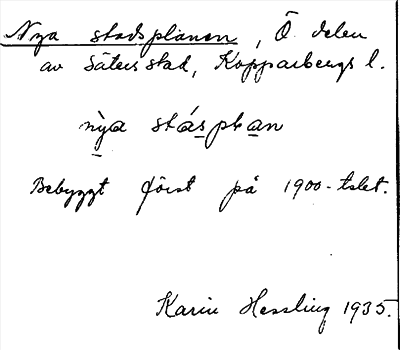 Nya stadsplanen, Ö. delen
av Säters stad, Kopparbergs l.
nya stásplan
Bebyggt först på 1900-talet.
Karin Hessling 1935.